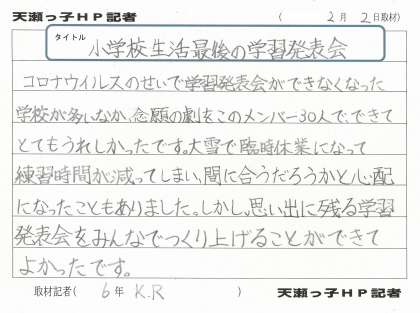 天瀬っ子HP記者 ( 2月 2日取材)
タイトル 小学校生活最後の学習発表会
コロナウイルスのせいで学習発表会ができなくなった
学校が多いなか、念願の劇をこのメンバー30人で、できて
とてもうれしかったです。大雪で臨時休業になって
練習時間が減ってしまい、間に合うだろうかと心配
になったこともありました。しかし、思い出に残る学習
発表会をみんなでつくり上げることができて
よかったです。
取材記者( 6年 K.R ) 天瀬っ子HP記者